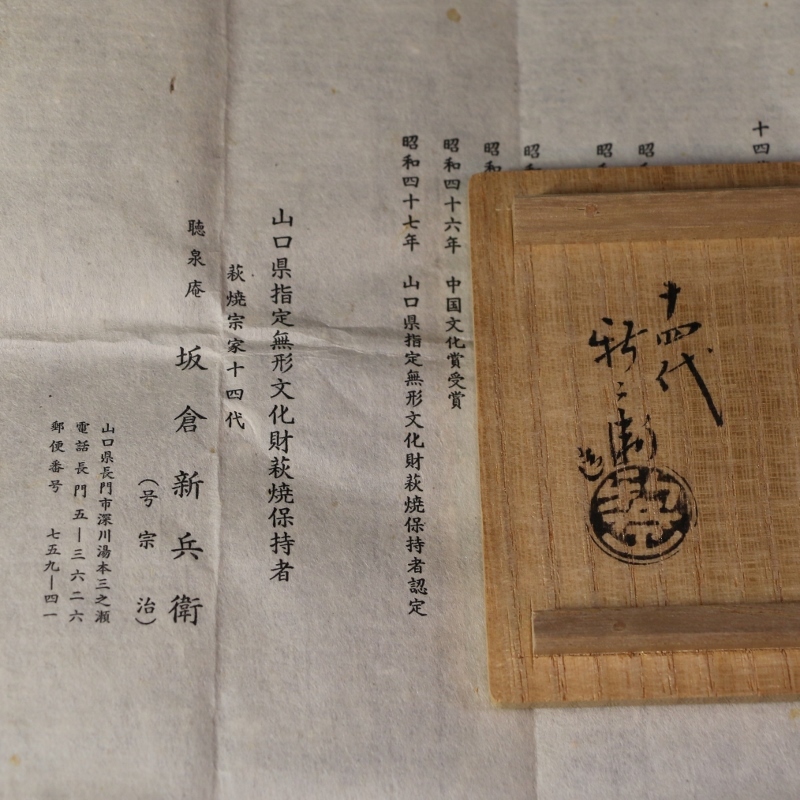 十四代
昭
昭
昭
昭和
昭和四十六年　中国文化賞受賞
昭和四十七年　山口県指定無形文化財萩焼保持者認定
山口県指定無形文化財萩焼保持者
萩焼宗家十四代
聴泉庵　坂倉新兵衛
（号　宗　治）
山口県長門市深川湯本三之瀬
電話長門　五―三六二六
郵便番号　七五九―四一
十四代
新兵衛
造